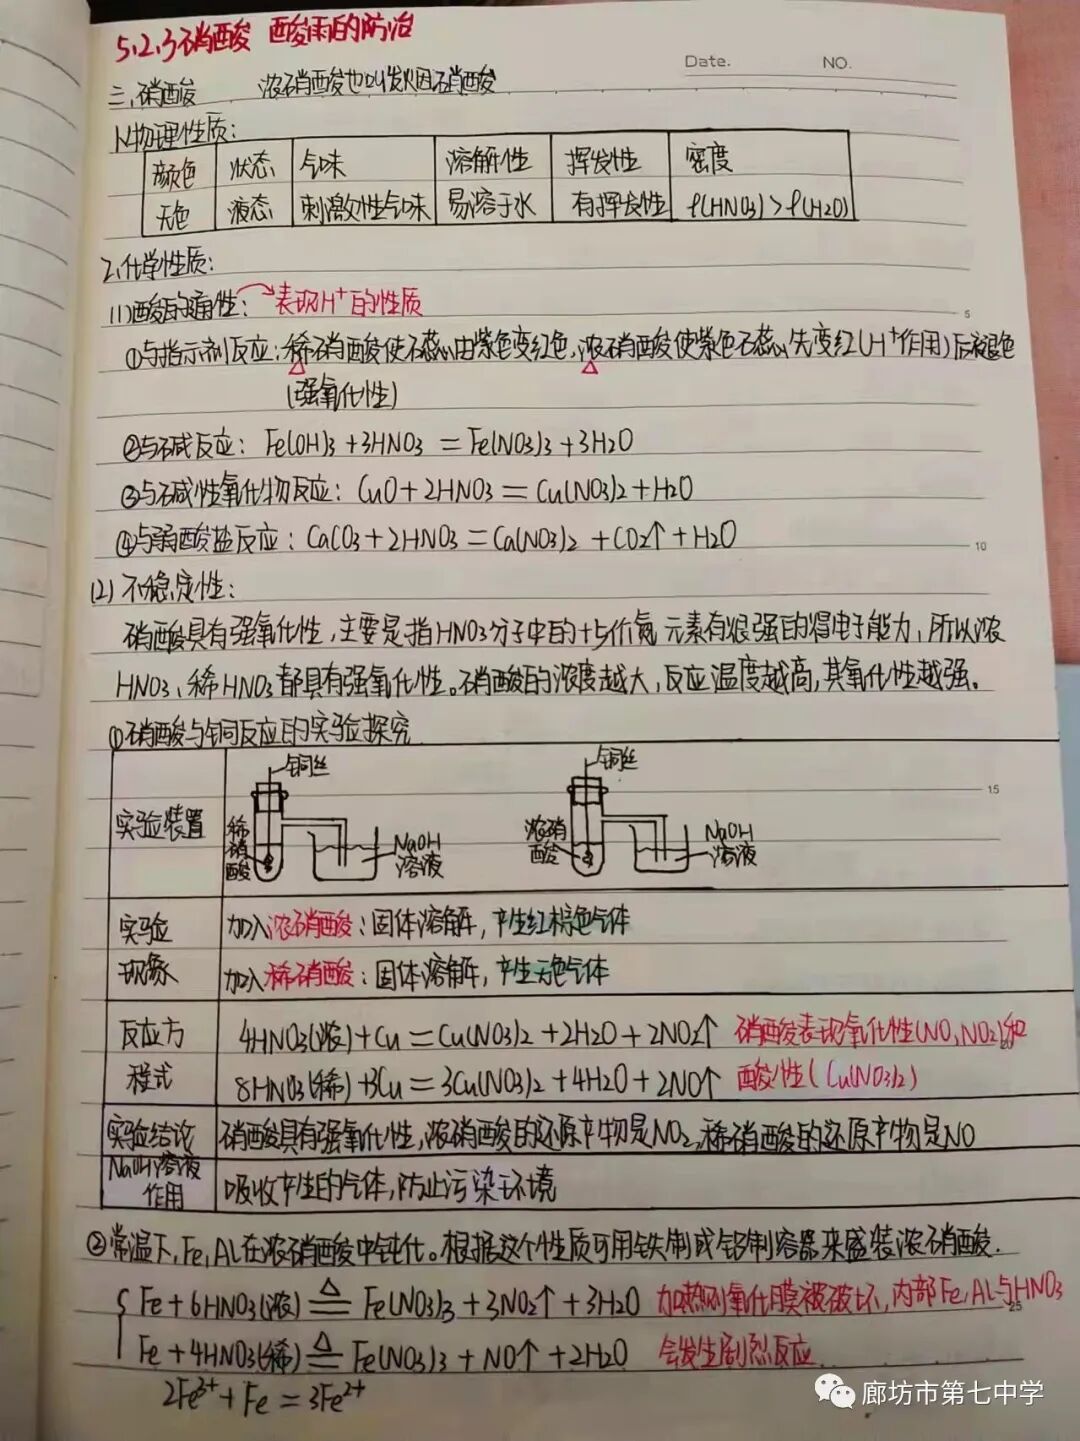 5.2.3硝酸 酸雨的防治
Date. NO.
三、硝酸 浓硝酸也叫发烟硝酸
1.物理性质:
颜色 状态 气味 溶解性 挥发性 密度
无色 液态 刺激性气味 易溶于水 有挥发性 ρ(HNO3)>ρ(H2O)
2.化学性质:
(1)酸的通性: 表现H⁺的性质
①与指示剂反应:稀硝酸使石蕊由紫色变红色,浓硝酸使紫色石蕊先变红(H⁺作用)后褪色
(强氧化性)
②与碱反应: Fe(OH)3+3HNO3=Fe(NO3)3+3H2O
③与碱性氧化物反应: CuO+2HNO3=Cu(NO3)2+H2O
④与弱酸盐反应: CaCO3+2HNO3=Ca(NO3)2+CO2↑+H2O
(2)不稳定性:
硝酸具有强氧化性,主要是指HNO3分子中的+5价氮元素有很强的得电子能力,所以浓
HNO3、稀HNO3都具有强氧化性。硝酸的浓度越大,反应温度越高,其氧化性越强。
①硝酸与铜反应的实验探究
实验装置 铜丝 稀硝酸 NaOH溶液 铜丝 浓硝酸 NaOH溶液
实验现象
加入浓硝酸:固体溶解,产生红棕色气体
加入稀硝酸:固体溶解,产生无色气体
反应方程式
4HNO3(浓)+Cu=Cu(NO3)2+2H2O+2NO2↑ 硝酸表现氧化性(NO,NO2)和
8HNO3(稀)+3Cu=3Cu(NO3)2+4H2O+2NO↑ 酸性(Cu(NO3)2)
实验结论 硝酸具有强氧化性,浓硝酸的还原产物是NO2,稀硝酸的还原产物是NO
NaOH溶液作用 吸收产生的气体,防止污染环境
②常温下,Fe,Al在浓硝酸中钝化。根据这个性质可用铁制或铝制容器来盛装浓硝酸.
Fe+6HNO3(浓)≜Fe(NO3)3+3NO2↑+3H2O 加热则氧化膜被破坏,内部Fe,Al与HNO3
Fe+4HNO3(稀)≜Fe(NO3)3+NO↑+2H2O 会发生剧烈反应.
2Fe³⁺+Fe=3Fe²⁺
5
10
15
20
25
廊坊市第七中学